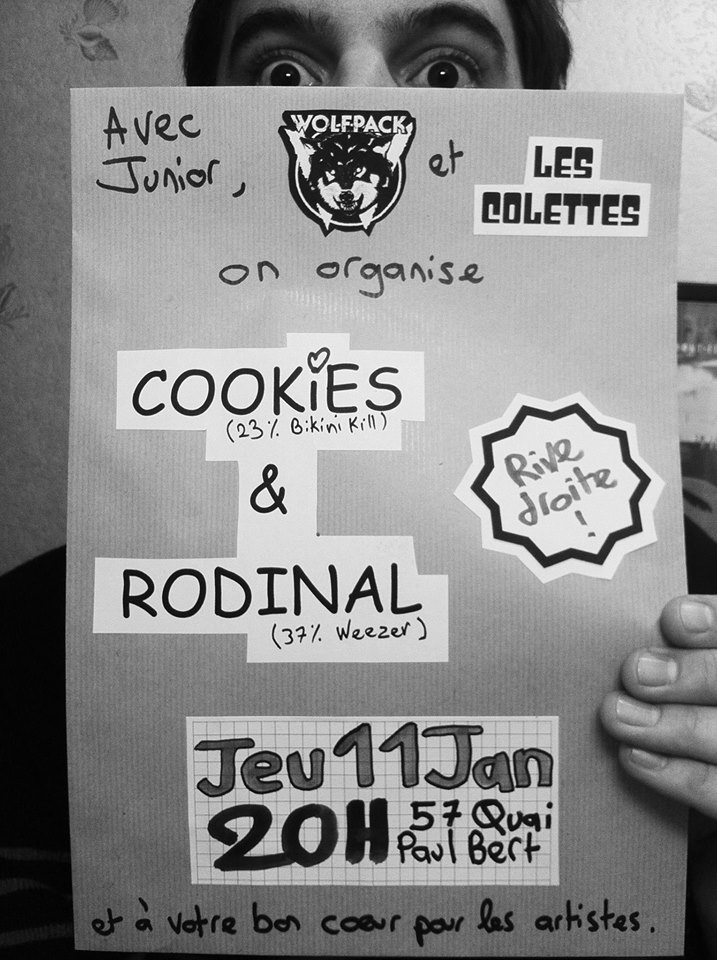 Avec
Junior,
WOLFPACK
et
LES
COLETTES
on organise
COOKiES
(23% Bikini Kill)
&
RODINAL
(37% Weezer)
Rive
droite
!
Jeu 11 Jan
20H
57 Quai
Paul Bert
et à votre bon cœur pour les artistes.